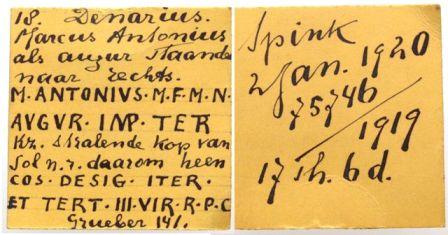 18. Denarius.
Marcus Antonius
als augur staande
naar rechts.
M. ANTONIVS. M. F. M. N.
AVGVR. IMP. TER
Kz. stralende kop van
Sol n. r. daarom heen
COS. DESIG. ITER.
ET TERT. III. VIR. R. P. C
Grueber 141.
Spink
2 Jan. 1920
75746
1919
17 sh. 6d.